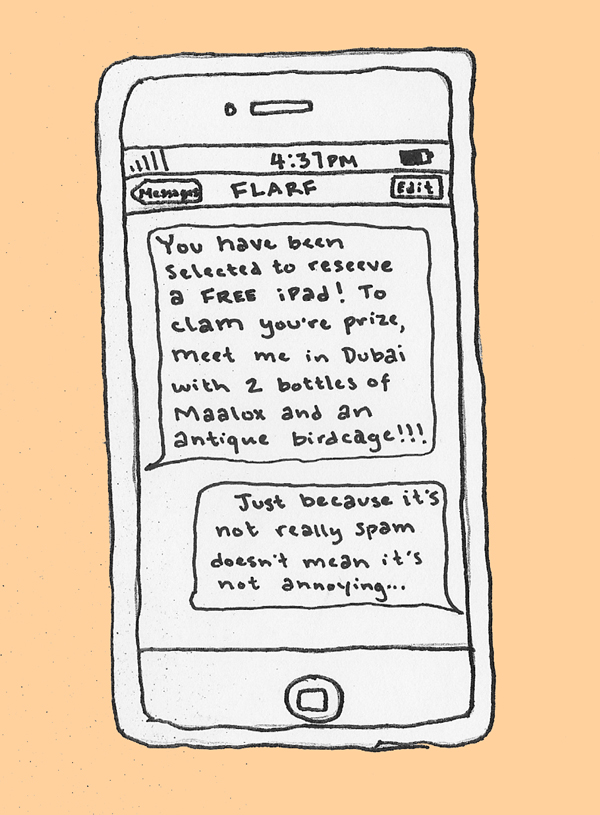 4:37PM
Messages FLARF Edit
You have been
selected to reserve
a FREE iPad! To
clam you're prize,
meet me in Dubai
with 2 bottles of
Maalox and an
antique birdcage!!!
Just because it's
not really spam
doesn't mean it's
not annoying...